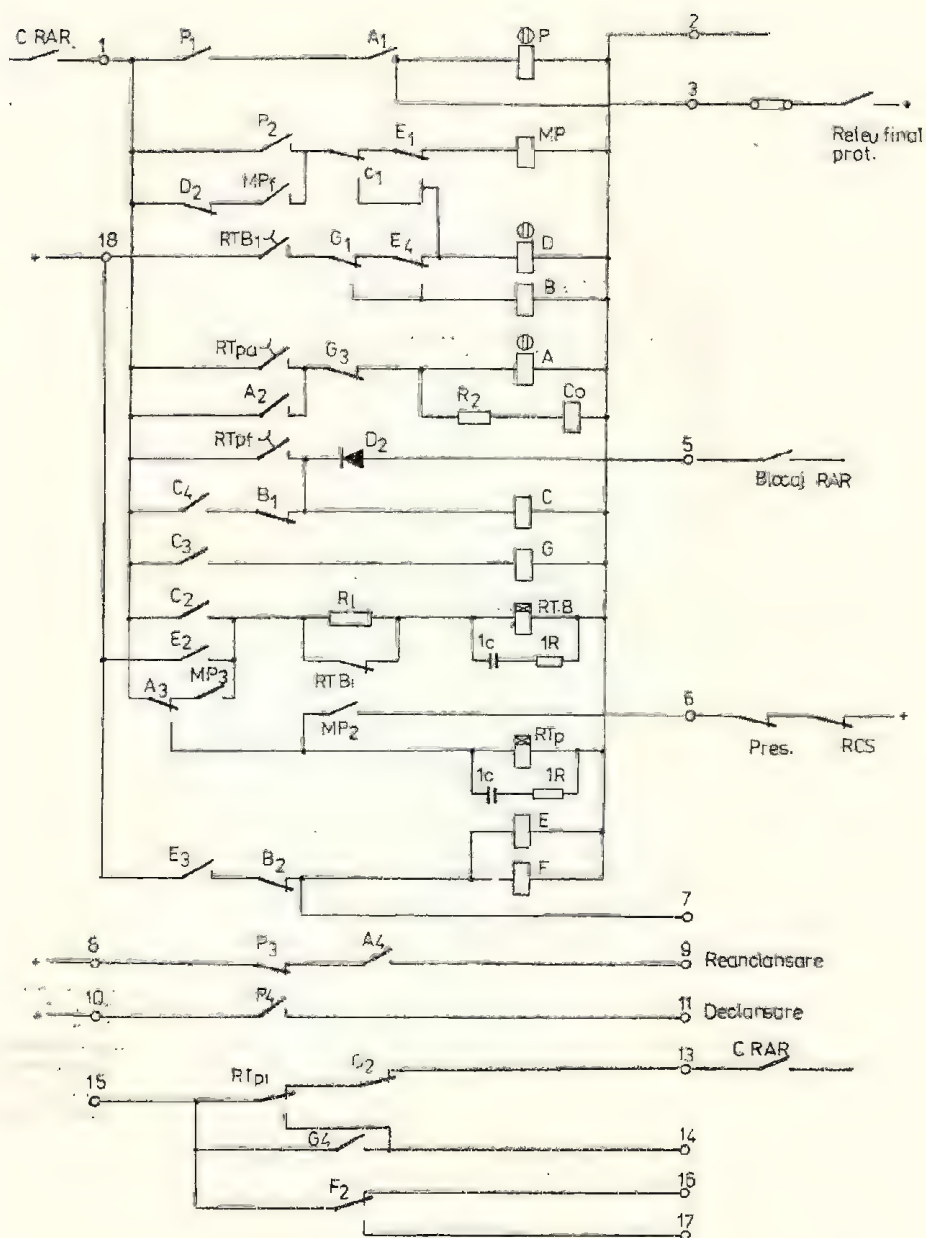 C RAR
1
P1
A1
P
2
3
+
Releu final
prot.
P2
E1
MP
C1
D2
MPf
18
+
RTB1
G1
E4
D
B
RTpa
G3
A
A2
R2
Co
RTpf
D2
5
Blocaj RAR
C4
B1
C
C3
G
C2
R1
RTB
E2
1c
1R
RTB1
A3
MP3
MP2
6
+
Pres.
RCS
RTp
1c
1R
E
E3
B2
F
7
+
8
P3
A4
9
Reanclansare
+
10
P4
11
Declansare
15
RTp1
G2
13
C RAR
G4
14
F2
16
17